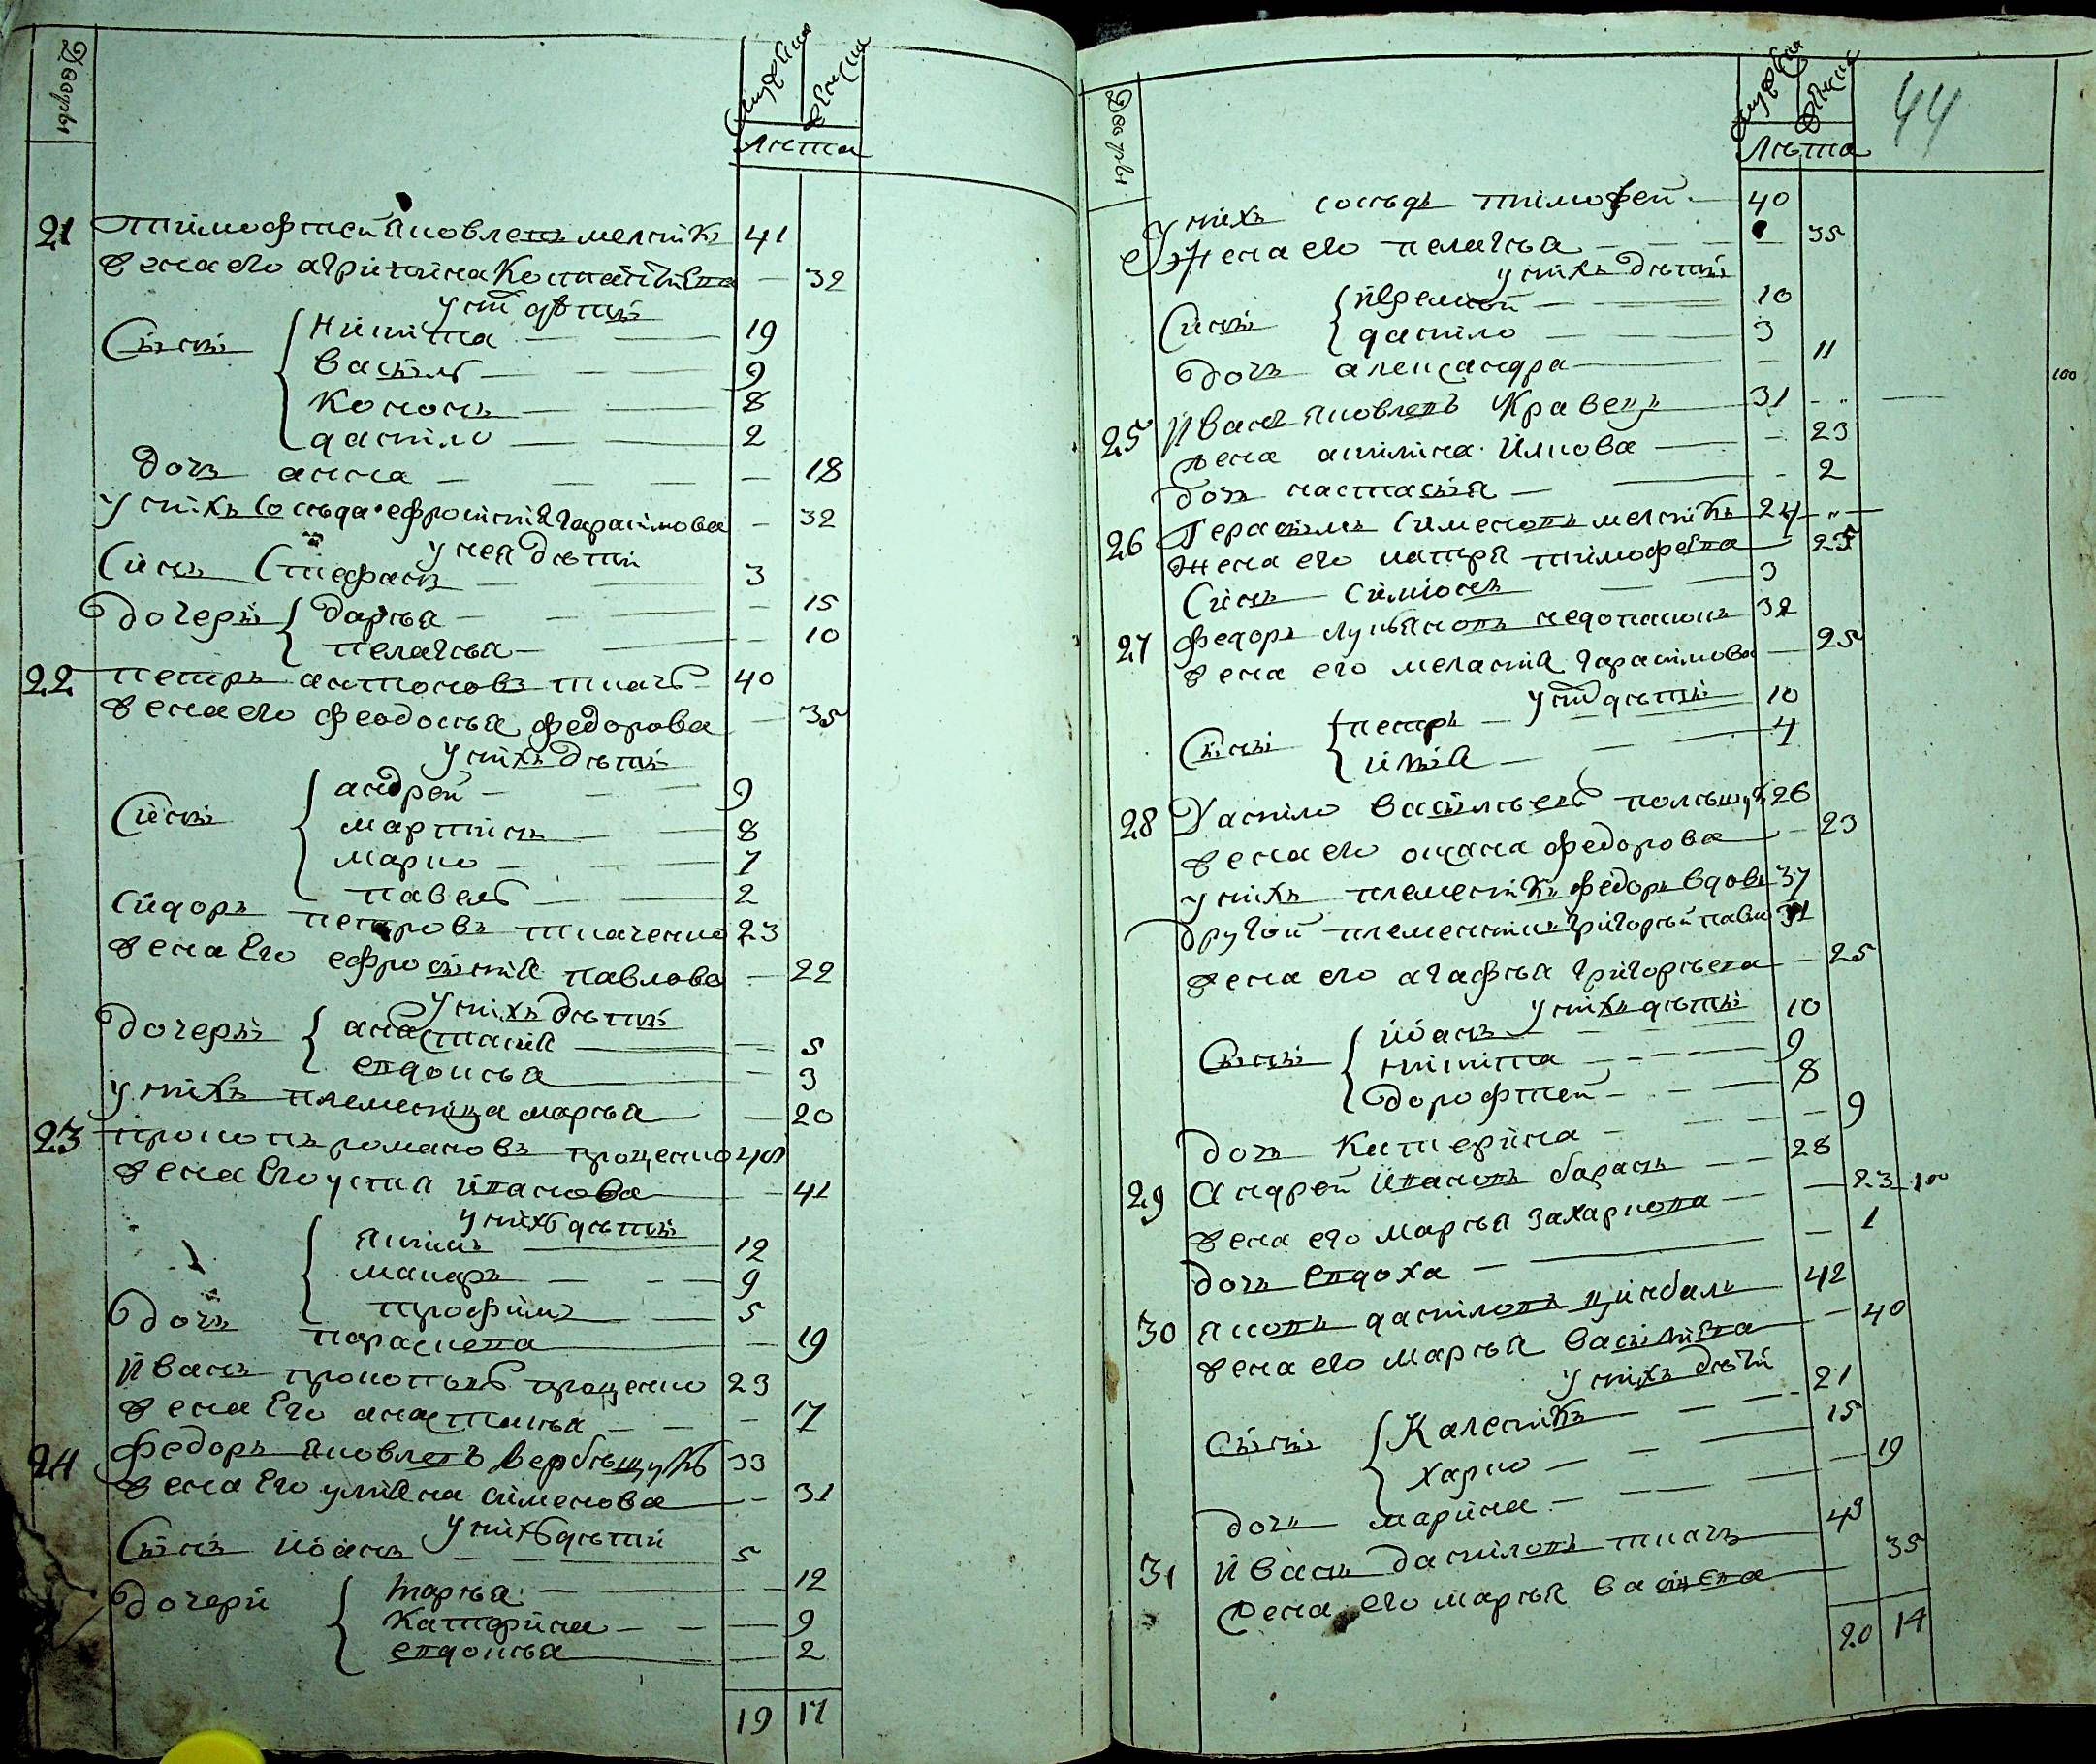 Дворы
мужеска
женска
Лета
21 Тимофтей Яковлевъ мелникъ 41
жена его агрипина Констант 32
у них дѣтий
Сыны Никита 19
Василь 9
Кононъ 8
данило 2
дочъ анна 18
у нихъ Сосѣда ефросиния гарасимова 32
у нея дѣтий
Синъ Стефанъ 3
дочери дарья 15
пелагья 10
22 петръ антоновъ ткачь 40
жена его феодосья федорова 35
у нихъ дѣтий
Сини андрей 9
мартинъ 8
марко 7
павелъ 2
Сидоръ петровъ ткаченко 23
жена Его ефросиния павлова 22
у нихъ дѣтий
дочери анастасия 5
евдокья 3
у нихъ племеница марья 20
23 прокопъ романовъ проценко 48
жена Его устиа иванова 41
у нихъ дѣтий
якимъ 12
макаръ 9
трофимъ 5
дочь параскева 19
Иванъ прокопьевъ проценко 23
жена Его анастасья 17
24 федоръ Яковлевъ вербѣцкъ 33
жена Его улияна сименова 31
у нихъ дѣтий
Синъ иоанъ 5
дочери марья 12
Катерина 9
евдокья 2
19 17
Дворы
мужеска
женска
Лѣта
44
у нихъ сосѣдъ тимофей 40
жена его пелагья 35
у нихъ дѣтий
Сини
данило 3
дочъ александра 11
100
25 Иванъ Яковлевъ Кравецъ 31
жена акилина Илкова 23
дочъ настасия 2
26 Герасимъ Сименовъ мелникъ 24
жена его матрия тимофеева 25
Синъ Симионъ 3
27 федоръ лукьяновъ недопакинъ 32
жена его мелания гарасимова 25
у них дѣтий
Сини петръ 10
илия 4
28 Данило васильевъ 26
жена его оксана федорова 23
у нихъ племеникъ федоръ вдовъ 37
другой племеникъ григорьи 31
жена его агафья григорьева 25
у нихъ дѣтий
Сыны иоанъ 10
никита 9
дорофтей 8
дочъ Катерина 9
29 Андрей ивановъ баранъ 28
жена его марья захаркова 23 100
дочъ евдоха 1
30 яковъ даниловъ цинбалъ 42
жена его марья василиева 40
у нихъ дѣтй
Сыны Каленикъ 21
харко 15
дочъ марина 19
31 Иванъ даниловъ ткачъ 43
жена его марья васиева 35
20 14